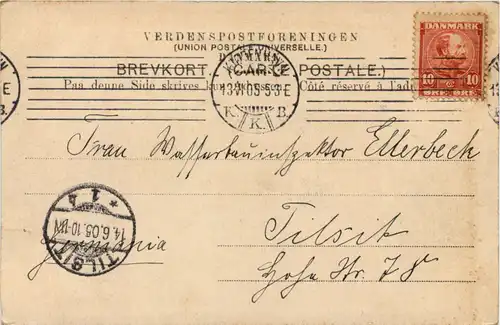 VERDENSPOSTFORENINGEN
(UNION POSTALE UNIVERSELLE.)
DANMARK
BREVKORT. (CARTE POSTALE.)
Paa denne Side skrives kun Adressen. Côté réservé à l'adresse
KJØBENHAVN
13.6.05.5-9E
K. K. B.
B.
DANMARK
10 10
ØRE ØRE
Frau Wasserbauinspektor Ellerbeck
Tilsit
Hohe Str. 78
Germania
TILSIT
14.6.05.10-11N
* 1 4